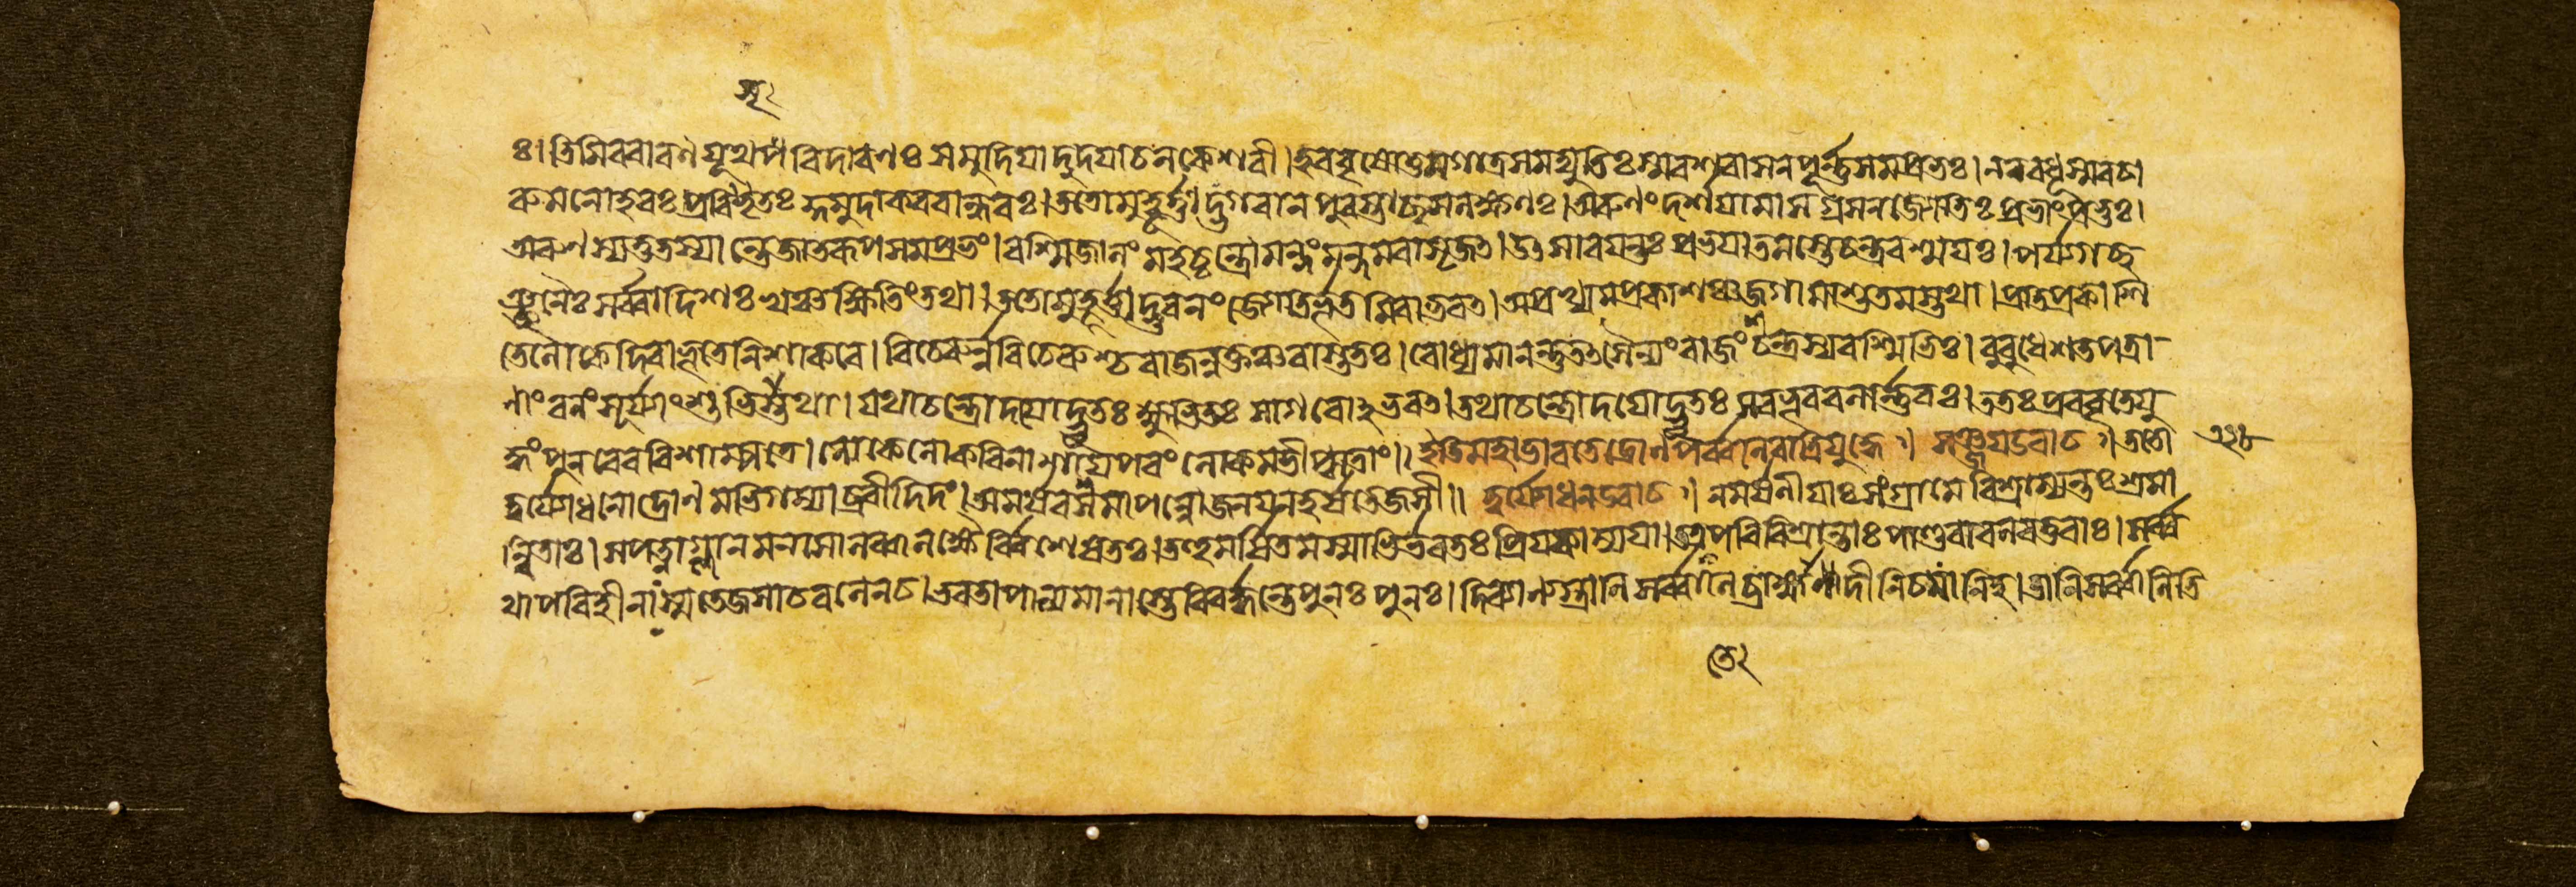 ঃ। তিমিরবারণযূথপবিদারণঃ সমুদিযাদুদযাচলকেশরী। হরবৃষোত্তমগাত্রসমদ্যুতিঃ স্মরশরাসনপূর্ন্নসমপ্রভঃ। নববধূস্মরচা
রুমনোহরঃ প্রবিসৃতঃ কুমুদাকরবান্ধবঃ। ততো মুহূর্ত্তাদ্ভগবান পুরস্তাচ্ছসলক্ষণঃ। অরুণং দর্শযামাস গ্রসন জ্যোতিঃ প্রভাং প্রভুঃ।
অরুণস্য তু তস্যান্তে জাতরূপসমপ্রভং। রশ্মিজালং মহচ্চন্দ্রো মন্দং মন্দমবাসৃজত। উৎসারযন্তঃ প্রভযা তমস্তে চন্দ্ররশ্মযঃ। পর্য্যগচ্ছ
ঞ্ছনৈঃ সর্ব্বা দিশঃ খঞ্চ ক্ষিতিং তথা। ততো মুহূর্ত্তাদ্ভুবনং জ্যোতির্ভূতমিবাভবত। অপ্রখ্যমপ্রকাশঞ্চ জগামাশু তমস্তথা। প্রতিপ্রকাশি
তে লোকে দিবাভূতে নিশাকরে। বিচেরুর্ন্ন বিচেরুশ্চ রাজন্নক্তঞ্চরাস্ততঃ। বোধ্যমানন্তু তৎ সৈন্যং রাজংশ্চন্দ্রস্য রশ্মিভিঃ। বুবুধে শতপত্রা
ণাং বনং সূর্য্যাংশুভির্স্তথা। যথা চন্দ্রোদযোদ্ধূতঃ ক্ষুভিতঃ সাগরো২ভবত। তথা চন্দ্রোদযোদ্ধূতঃ স বভূব বলার্ন্নবঃ। ততঃ প্রববৃতে যু
দ্ধং পুনরেব বিশাম্পতে। লোকে লোকবিনাশায পরং লোকমভীপ্সতাং॥ ইতি মহাভারতে দ্রোণপর্ব্বনি রাত্রিযুদ্ধে॥ সঞ্জয উবাচ॥ ততো
দুর্য্যোধনো দ্রোণমভিগম্যাব্রবীদিদং। অমর্ষবসমাপন্নো জনযন হর্ষতেজসী॥ দুর্য্যোধন উবাচ॥ ন মর্ষনীযাঃ সংগ্রামে বিশ্রাম্যন্তঃ শ্রমা
ন্বিতাঃ। সপত্না গ্লানমনসো লব্ধলক্ষ্যৈর্ব্বিশেষতঃ। তত্তু মর্ষিতমস্মাভির্ভবতঃ প্রিযকাম্যযা। ত এ পরিবিশ্রান্তাঃ পাণ্ডবা বলবত্তরাঃ। সর্ব্ব
থা পরিহীনাঃ স্ম তেজসা চ বলেন চ। ভবতা পাল্যমানাস্তে বিবর্দ্ধন্তে পুনঃ পুনঃ। দিব্যান্যস্ত্রানি সর্ব্বানি ব্রাহ্মাদীনি চ যানি হ। তানি সর্ব্বানি তি